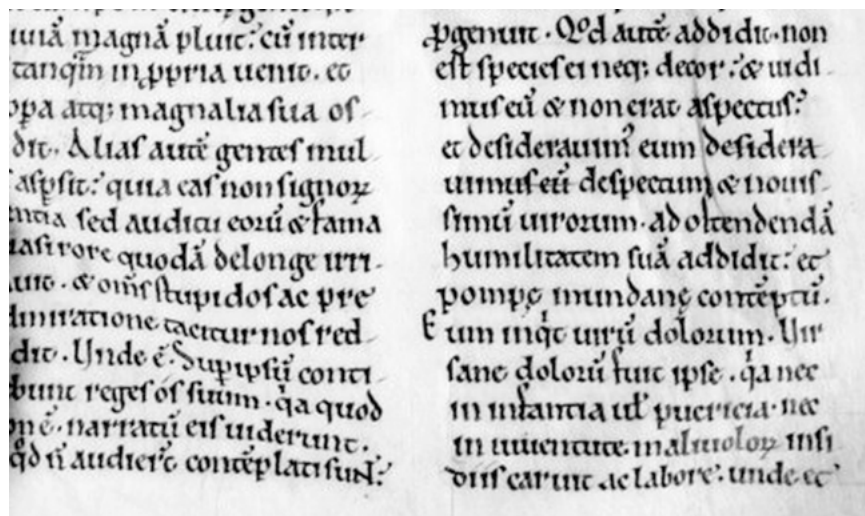 magnā pluit: cū inter
tanq̄m in ꝓpria uenit. et
atq; magnalia sua os
dit. Alias autē gentes mul
aspsit: quia eas non signoꝝ
sed auditu eorū & fama
rore quodā delonge irri
& om̄s stupidos ac pre
admiratione tacitur nos red
dit. Unde ē. Sup ipsū conti
bunt reges os suum. q̄a quod
ē. narratū eis uiderunt.
qd n̄ audier̄t contēplati sunt.
ꝓgenuit. Qd autē addidit. non
est species ei neq; decor: & uidi
mus eū & non erat aspectus:
et desiderauim᾽ eum desidera
uimus eū despectum & nouis
simū uirorum. ad ostendendā
humilitatem suā addidit: et
pompę mundanę contēptū.
Eum inq̇t uirū dolorum. Uir
sane dolorū fuit ipse. q̇a nec
in infantia ul̄ puericia. nec
in iuuentute. maliuoloꝝ insi
diis caruit ac labore. unde et